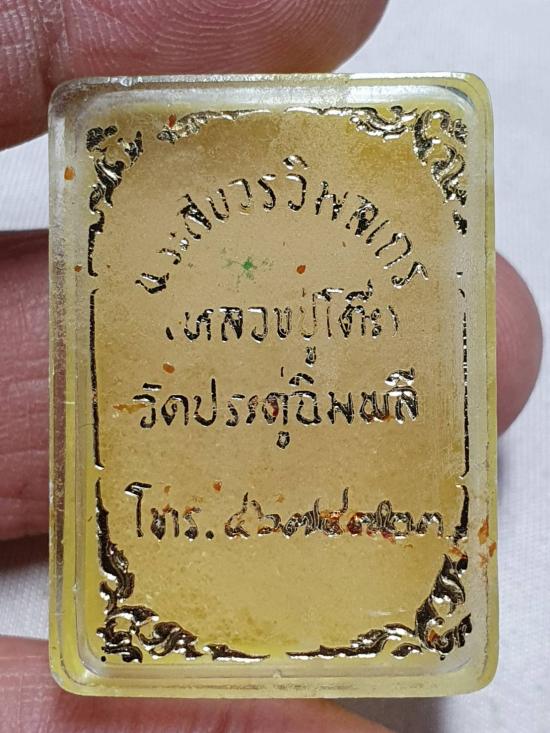 พระสังวรวิมลเถร
(หลวงปู่โต๊ะ)
วัดประดู่ฉิมพลี
โทร.